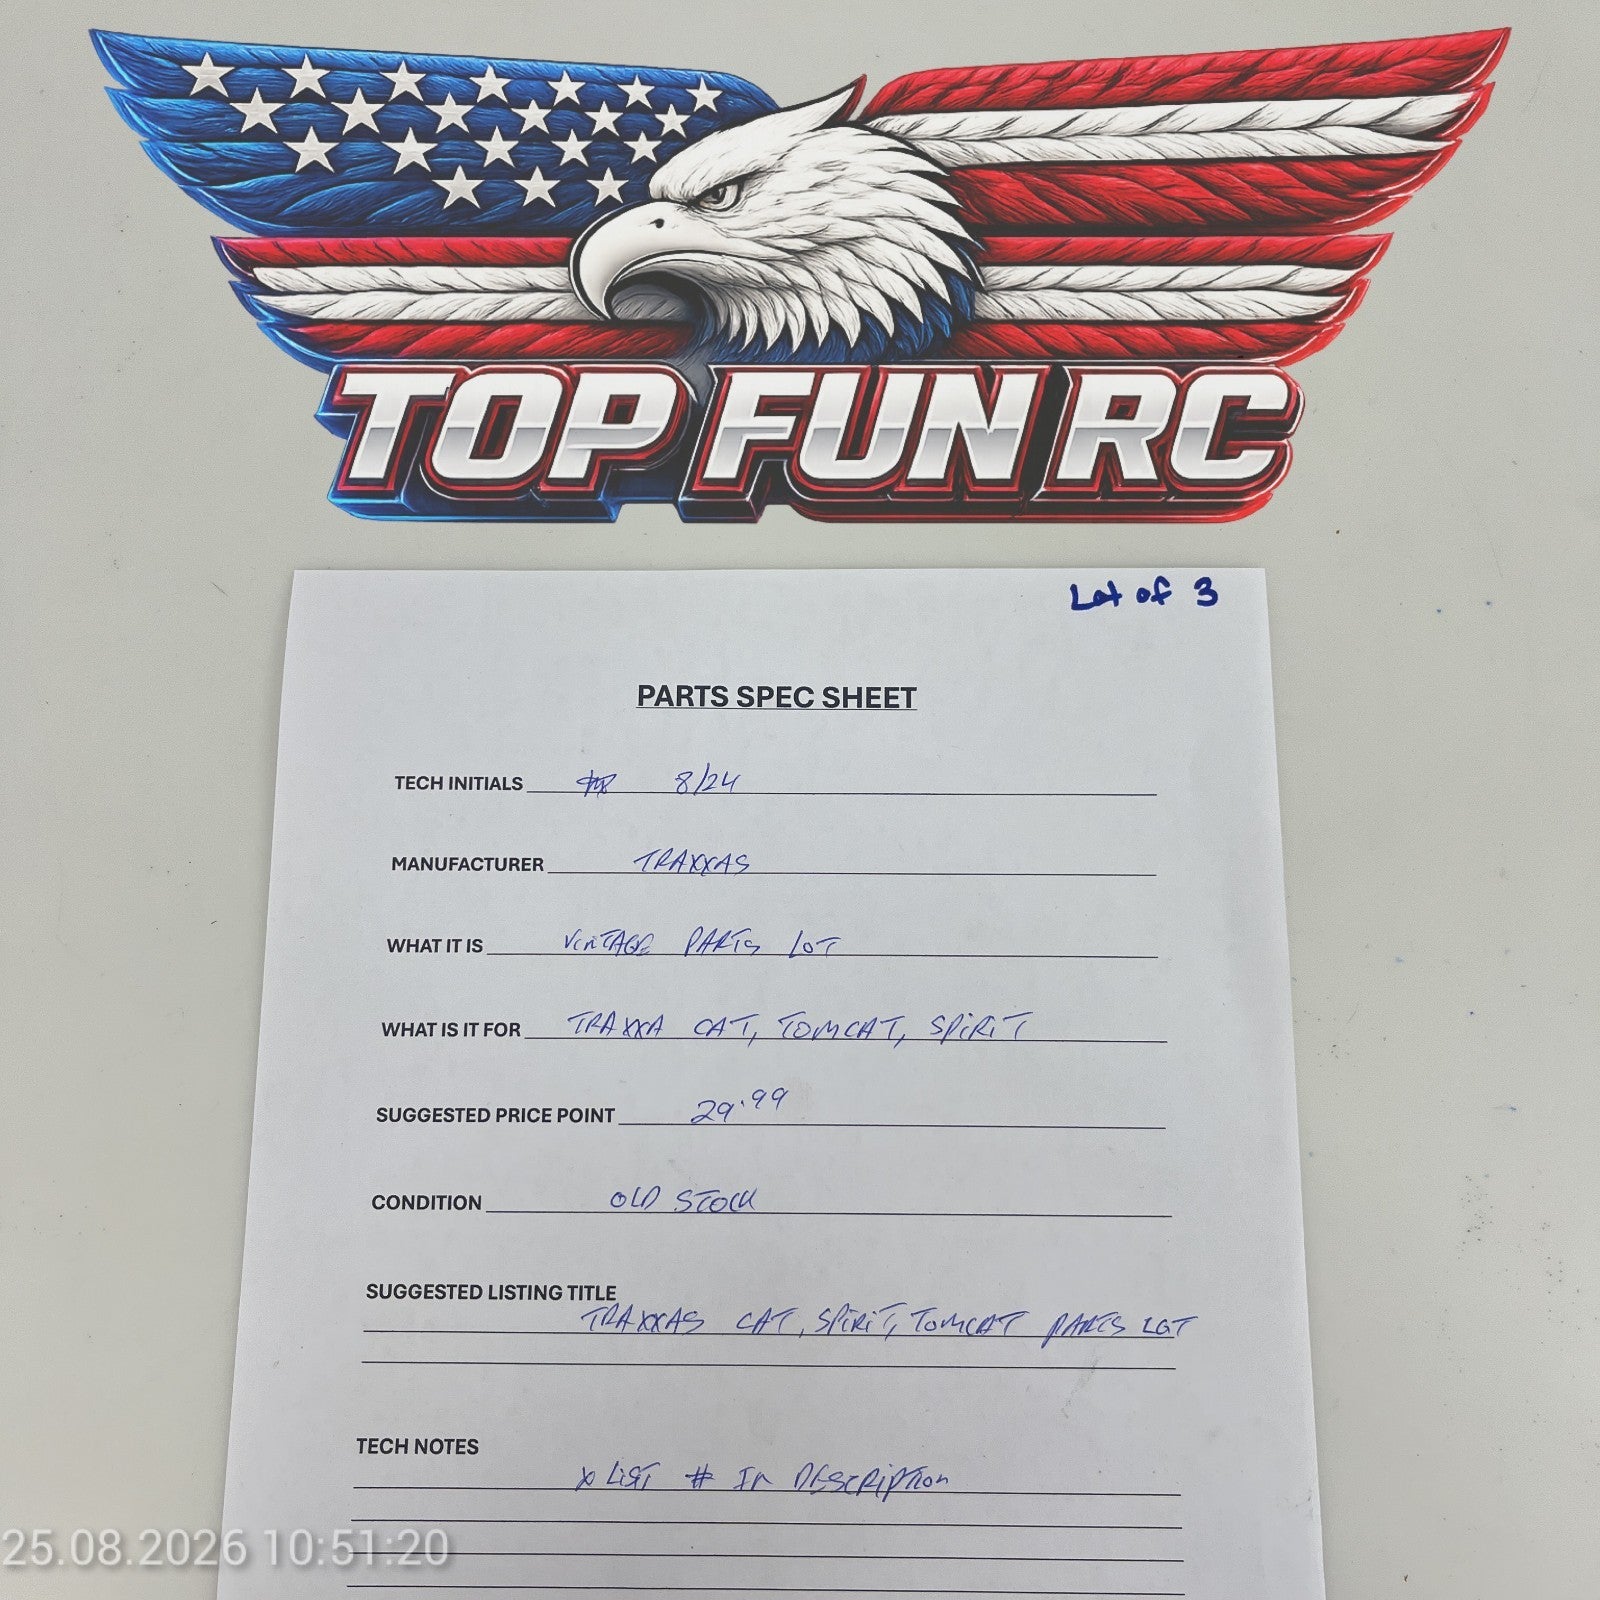 TOP FUN RC
Lot of 3
PARTS SPEC SHEET
TECH INITIALS 8/24
MANUFACTURER TRAXXAS
WHAT IT IS VINTAGE PARTS LOT
WHAT IS IT FOR TRAXXA CAT, TOMCAT, SPIRIT
SUGGESTED PRICE POINT 29.99
CONDITION OLD STOCK
SUGGESTED LISTING TITLE
TRAXXAS CAT, SPIRIT, TOMCAT PARTS LOT
TECH NOTES
* LIST # IN DESCRIPTION
25.08.2026 10:51:20